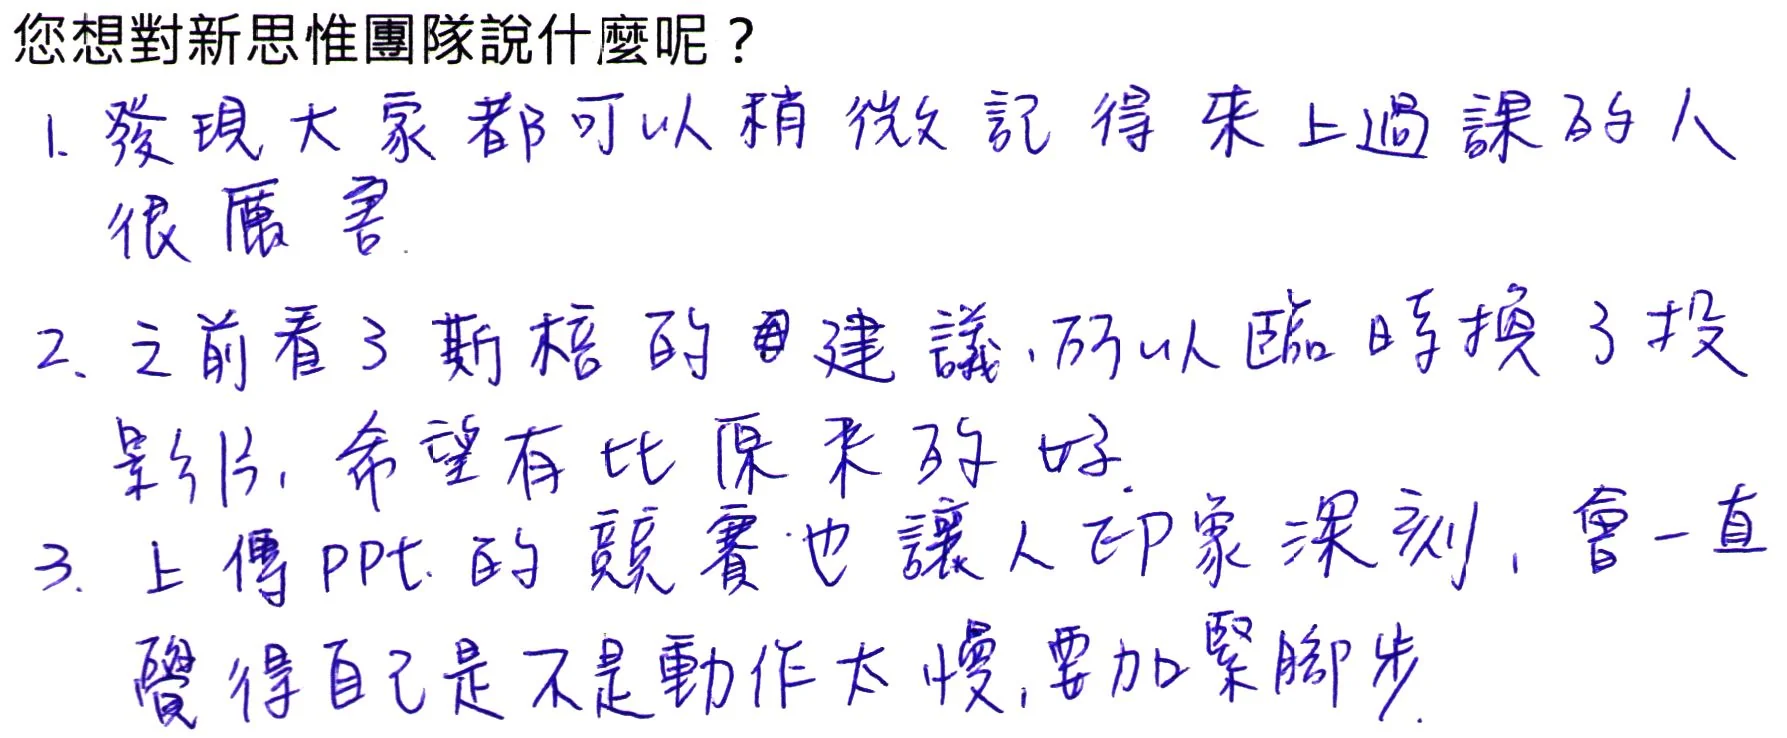 您想對新思惟團隊說什麼呢？
1. 發現大家都可以稍微記得來上過課的人
很厲害.
2. 之前看了斯梧的建議,所以臨時換了投
影片,希望有比原來的好.
3. 上傳PPt.的競賽也讓人印象深刻,會一直
覺得自己是不是動作太慢,要加緊腳步.